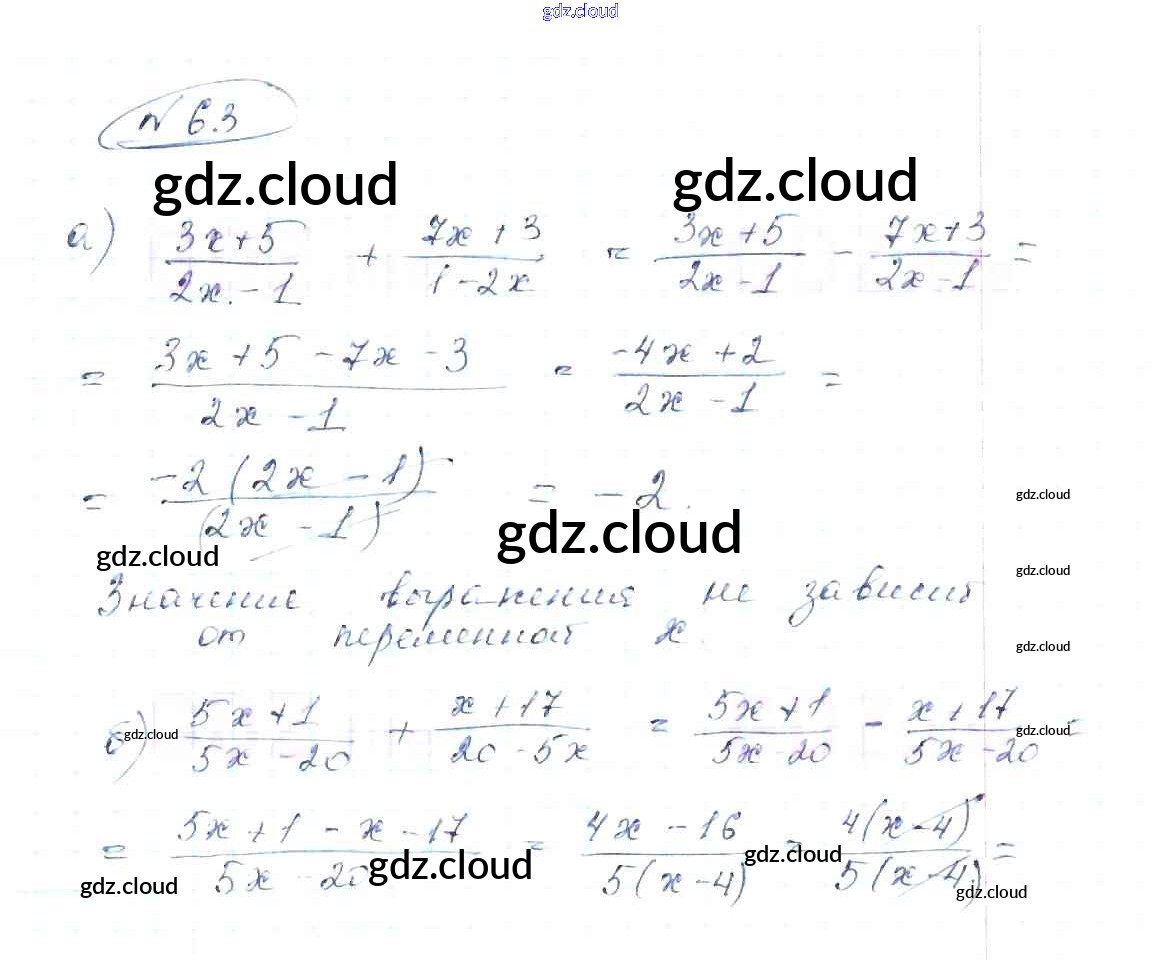 gdz.cloud
N 6.3
gdz.cloud gdz.cloud
а) (3x+5)/(2x-1) + (7x+3)/(1-2x) = (3x+5)/(2x-1) - (7x+3)/(2x-1) =
= (3x+5-7x-3)/(2x-1) = (-4x+2)/(2x-1) =
= (-2(2x-1))/((2x-1)) = -2.
gdz.cloud
gdz.cloud
gdz.cloud
gdz.cloud
Значение выражения не зависит
от переменной x.
gdz.cloud
б) (5x+1)/(5x-20) + (x+17)/(20-5x) = (5x+1)/(5x-20) - (x+17)/(5x-20) =
gdz.cloud gdz.cloud
= (5x+1-x-17)/(5x-20) = (4x-16)/(5(x-4)) = (4(x-4))/(5(x-4)) =
gdz.cloud gdz.cloud
gdz.cloud gdz.cloud